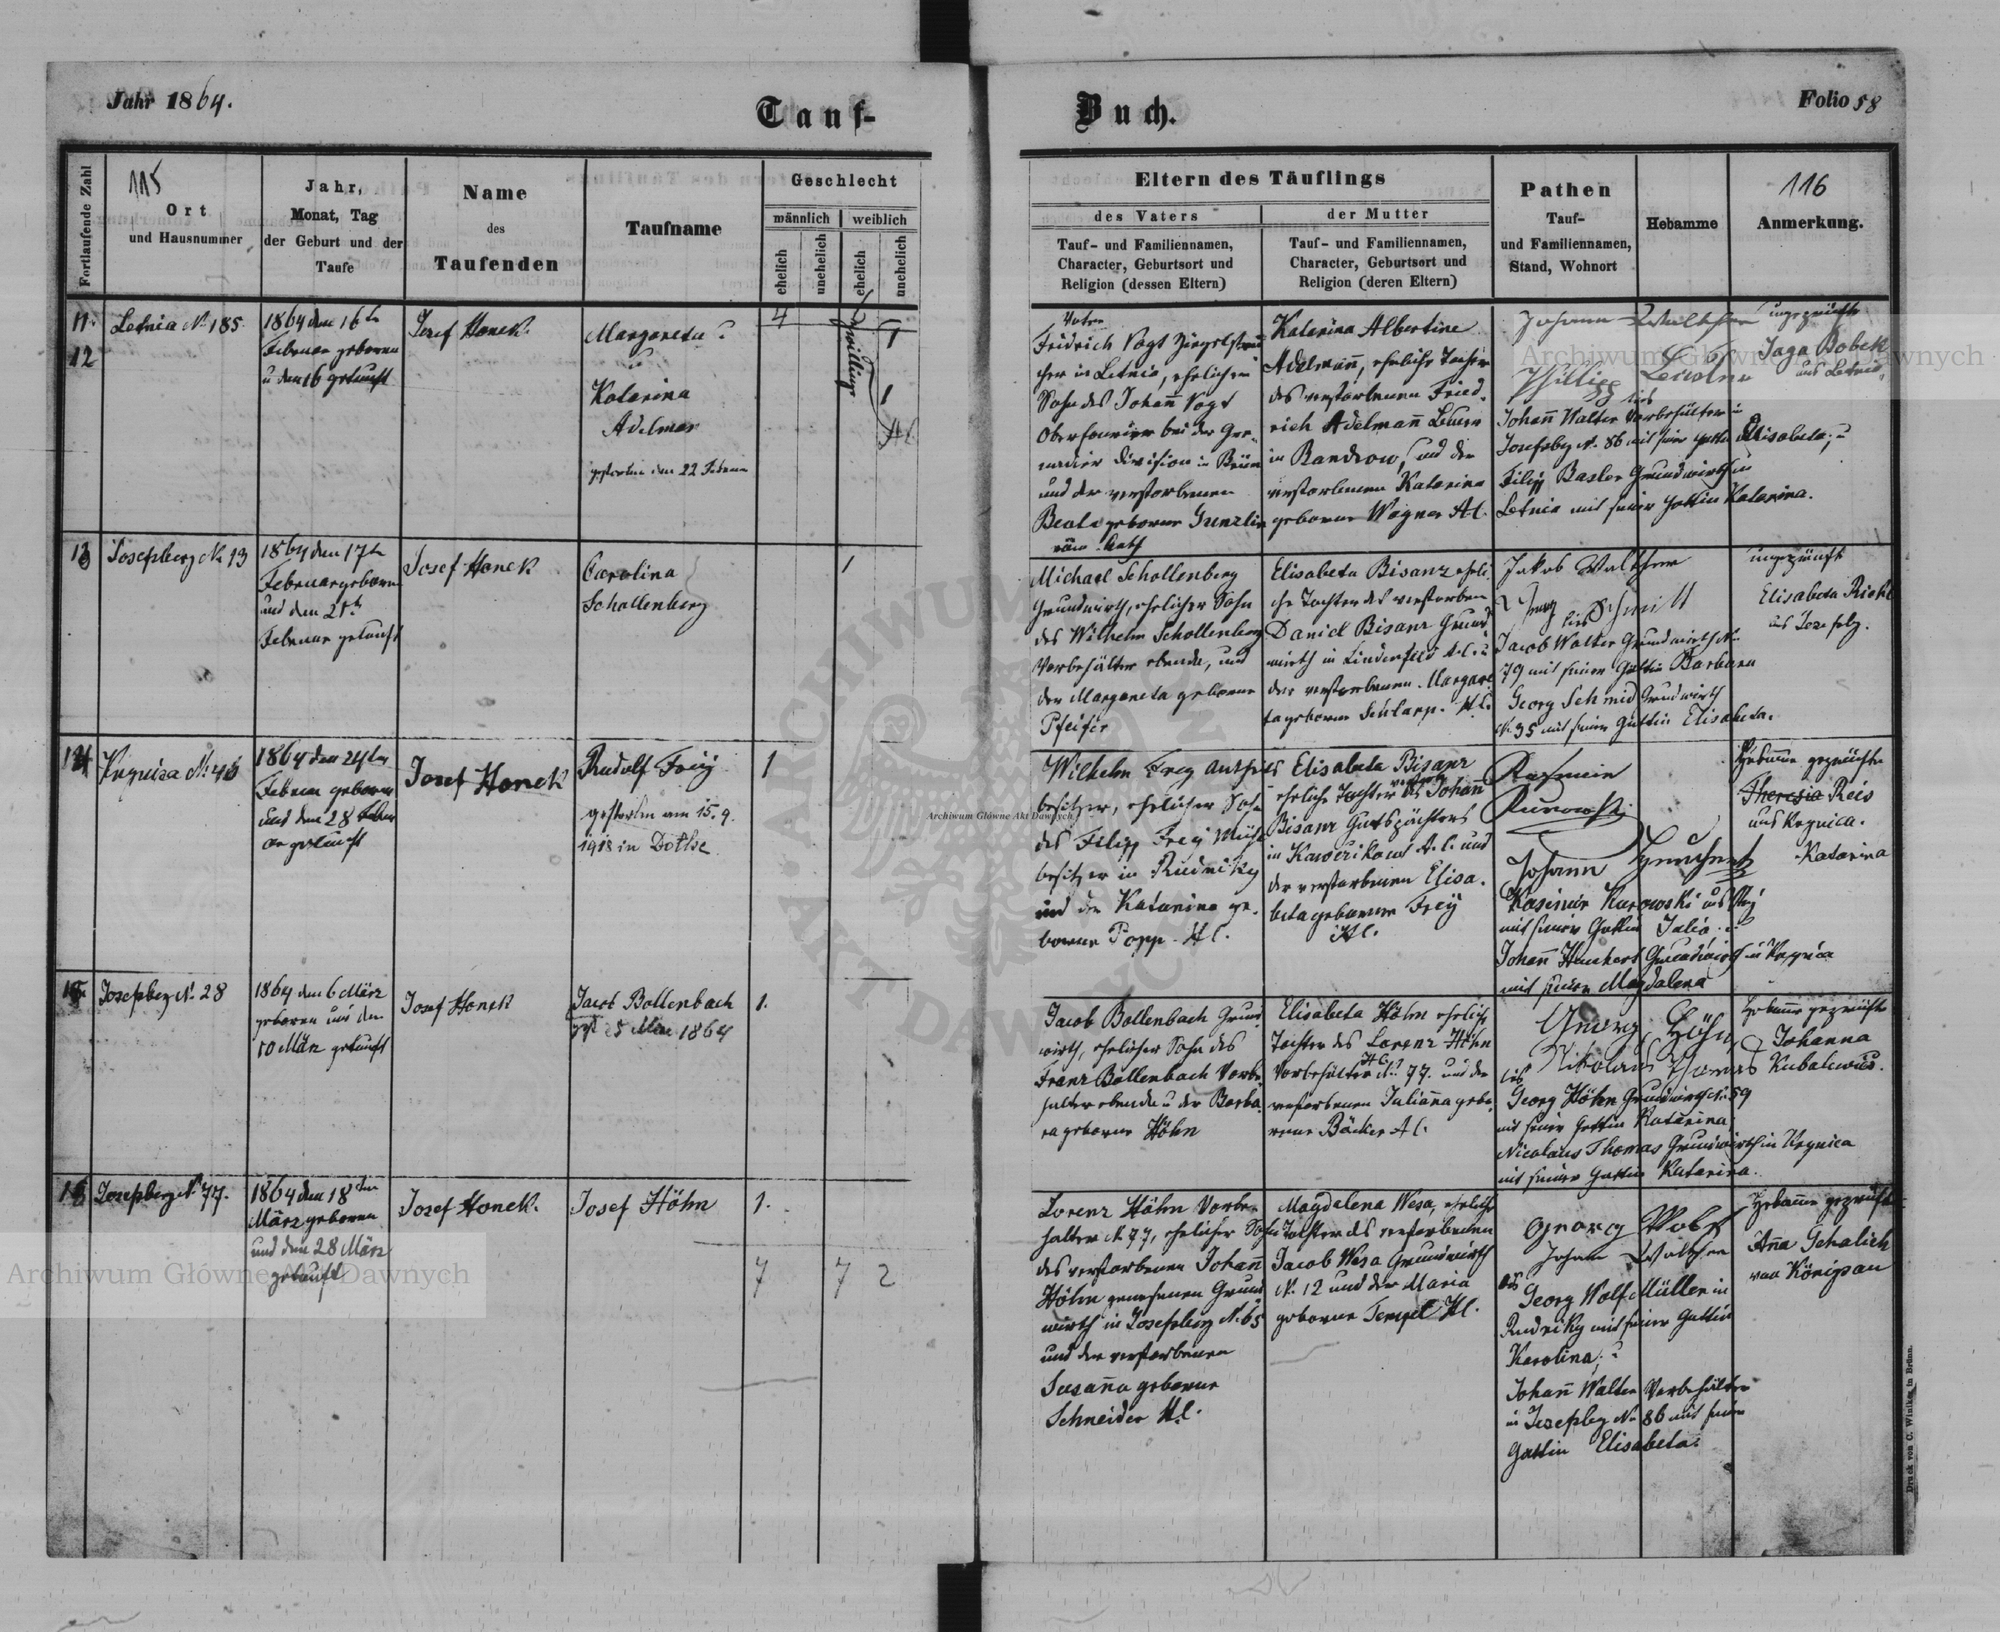 Jahr 1864.
Tauf-
Buch.
Folio 58
Fortlaufende Zahl
115
Ort
und Hausnummer
Jahr,
Monat, Tag
der Geburt und der
Taufe
Name
des
Taufenden
Taufname
Geschlecht
männlich
weiblich
ehelich
unehelich
ehelich
unehelich
Eltern des Täuflings
des Vaters
Tauf- und Familiennamen,
Character, Geburtsort und
Religion (dessen Eltern)
der Mutter
Tauf- und Familiennamen,
Character, Geburtsort und
Religion (deren Eltern)
Pathen
Tauf-
und Familiennamen,
Stand, Wohnort
Hebamme
116
Anmerkung.
11.
12
Letnia N. 185.
1864 den 16ten
Februar geboren
u den 16 getauft
Josef Honek.
Margareta u
Katarina
Adelman
gestorben den 22 Februar
4
Zwillinge
1
1
Vater
Fridrich Vogt
cher in Letnia, ehelicher
Sohn des Johann Vogt
bei der Gre-
nadier Division in Brün
und der verstorbenen
Beata geborne Gunzlin
röm. kath
Katarina Albertine
Adelmann, eheliche Tochter
des verstorbenen Fried-
rich Adelmann
in Bandrow, und der
verstorbenen Katarina
geborne Wagner A.C.
Johann Walther
Philipp
Johann Walter Vorbehälter in
Josefsbg N. 86 mit seiner Gattin Elisabeta, u
Filipp Basler Grundwirth in
Letnia mit seiner Gattin Katarina.
ungeprüft
Jaga Bobek
aus Letnia.
13
Josefsberg N. 13
1864 den 17ten
Februar geboren
und den 21ten
Februar getauft
Josef Honek
Carolina
Schollenberg
1
Michael Schollenberg
Grundwirth, ehelicher Sohn
des Wilhelm Schollenberg
Vorbehälter ebenda, und
der Margareta geborne
Pfeifer
Elisabeta Bisanz eheli-
che Tochter des verstorben
Daniel Bisanz Grund
wirth in Lindenfeld A.C. u
der verstorbenen Margare
ta geborne H.C.
Jakob Walther
Georg Schmitt
Jacob Walter Grundwirth N.
79 mit seiner Gattin Barbara
Georg Schmid Grundwirth
N. 35 mit seiner Gattin Elisabeta.
ungeprüft
Elisabeta Riehl
aus Josefsbg.
14
Ugniza N. 46
1864 den 24ten
Februar geboren
und den 28 Febru
ar getauft
Josef Honek
Rudolf Freÿ
gestorben am 15.9.
1918 in Dothe
1
Wilhelm Frey Guths-
besitzer, ehelicher Sohn
des Filipp Freÿ Mühl
besitzer in Rudniky
und der Katarina ge-
borene Popp. H.C.
Elisabeta Bisanz
eheliche Tochter des Johann
Bisanz Gutspächters
in Kawczikowt A.C. und
der verstorbenen Elisa-
beta geborenen Freÿ
H.C.
Kasimir
Kurowski
Johann
Kasimir Kurowski aus
mit seiner Gattin Julia u
Johann Grundwirth in Ugniza
mit seiner Magdalena
Hebamme geprüft
Theresia Reis
aus Ugnica.
Katarina
15
Josefsberg N. 28
1864 den 6 März
geboren und den
10 März getauft
Josef Honek
Jacob Bollenbach
gst 25 März 1864
1.
Jacob Bollenbach Grund
wirth, ehelicher Sohn des
Franz Bollenbach Vorbe-
halter ebenda u der Barba
ra geborne Höhn
Elisabeta Höhn ehelich
Tochter des Lorenz Höhn
H.C.
Vorbehälter N. 77. und der
verstorbenen Julianna gebo-
rene Bäcker A.C.
Georg Höhn
Nikolaus Thomas
Georg Höhn Grundwirth N. 59
mit seiner Gattin Katarina
Nicolaus Thomas Grundwirth in Ugnica
mit seiner Gattin Katarina.
Hebamme geprüft
Johanna
Kubalewicz.
16
Josefsberg N. 77.
1864 den 18ten
März geboren
und den 28 März
getauft
Josef Honek.
Josef Höhn
1.
7
7
2
Lorenz Höhn Vorbe-
halter N. 77, ehelicher Sohn
des verstorbenen Johann
Höhn gewesenen Grund
wirth in Josefsberg N. 65
und der verstorbenen
Susanna geborne
Schneider H.C.
Magdalena Wesa, eheliche
Tochter des verstorbenen
Jacob Wesa Grundwirth
N. 12 und der Maria
geborne Tempel H.C.
Georg Wolf
Johann Walther
Georg Wolf Müller in
Rudniky mit seiner Gattin
Karolina, u
Johann Walter Vorbehälter
in Josefsbg N. 86 mit seiner
Gattin Elisabeta.
Hebamme geprüft
Anna Schalich
von Königsau
Druck von C. Winiker in Brünn.
Archiwum Główne Akt Dawnych
Archiwum Główne Akt Dawnych
Archiwum Główne Akt Dawnych